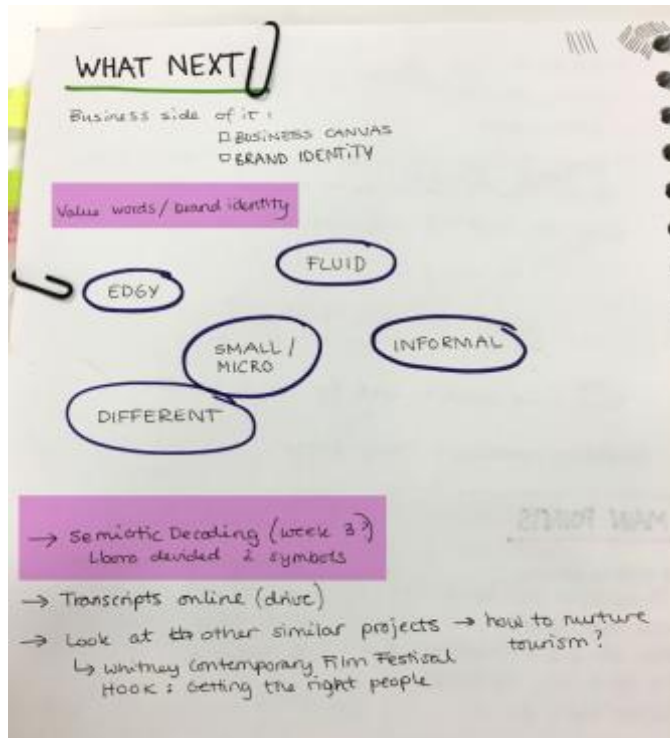 WHAT NEXT
Business side of it:
BUSINESS CANVAS
BRAND IDENTITY
Value words/brand identity
FLUID
EDGY
SMALL/
MICRO
INFORMAL
DIFFERENT
→ Semiotic Decoding (week 3?)
devided 2 symbols
→ Transcripts online (drive)
→ Look at other similar projects → how to nurture
tourism?
↳ Whitney Contemporary Film Festival
HOOK: Getting the right people
MAIN POINTS